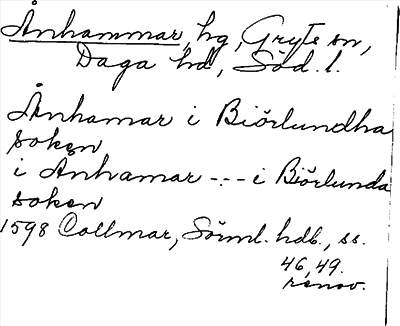 Ånhammar, hg, Gryts sn,
Daga hd, Söd. l.
Ånhamar i Biörlundha
soken
i Anhamar --- i Biörlunda
soken
1598 Collmar, Sörml. hdb., ss.
46, 49.
renov.